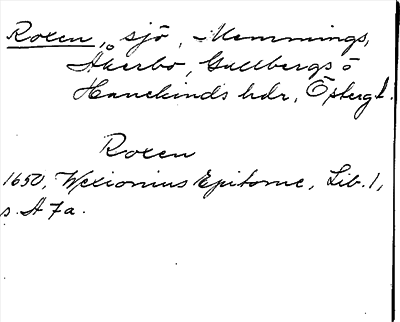 Roxen, sjö, Memmings,
Åkerbo, Gullbergs o
Hanekinds hdr, Östergl.
Roxen
1650, Wexionius Epitome, Lib. 1,
s. A 7a.